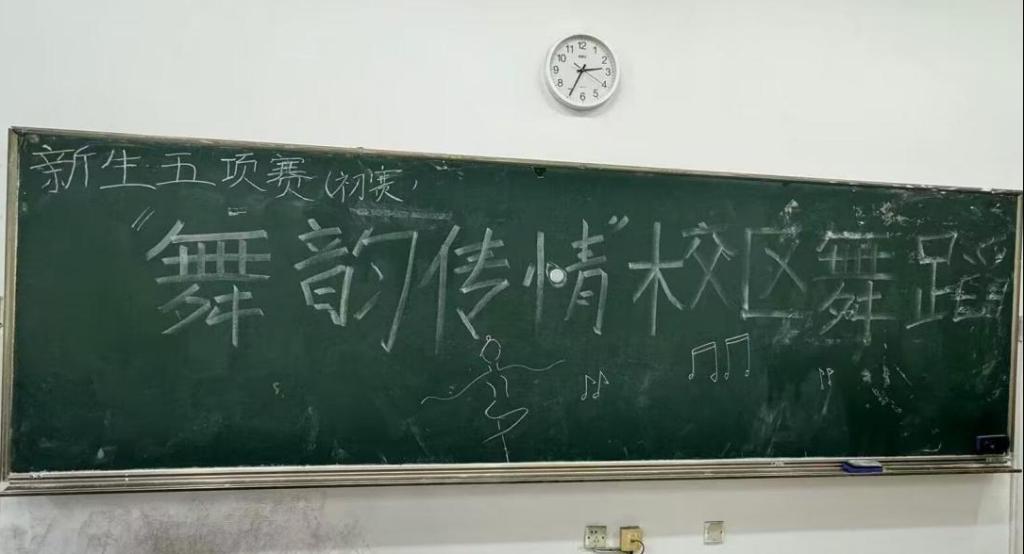 新生五项赛（初赛）
“舞韵传情”校区舞蹈
12
1
2
3
4
5
6
8
9
10
11